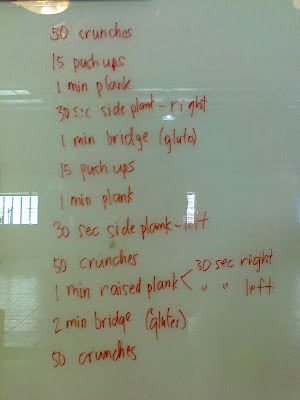 50 crunches
15 push ups
1 min plank
30 sec side plank - right
1 min bridge (glutes)
15 push ups
1 min plank
30 sec side plank - left
50 crunches
1 min raised plank < 30 sec right
" " left
2 min bridge (glutes)
50 crunches